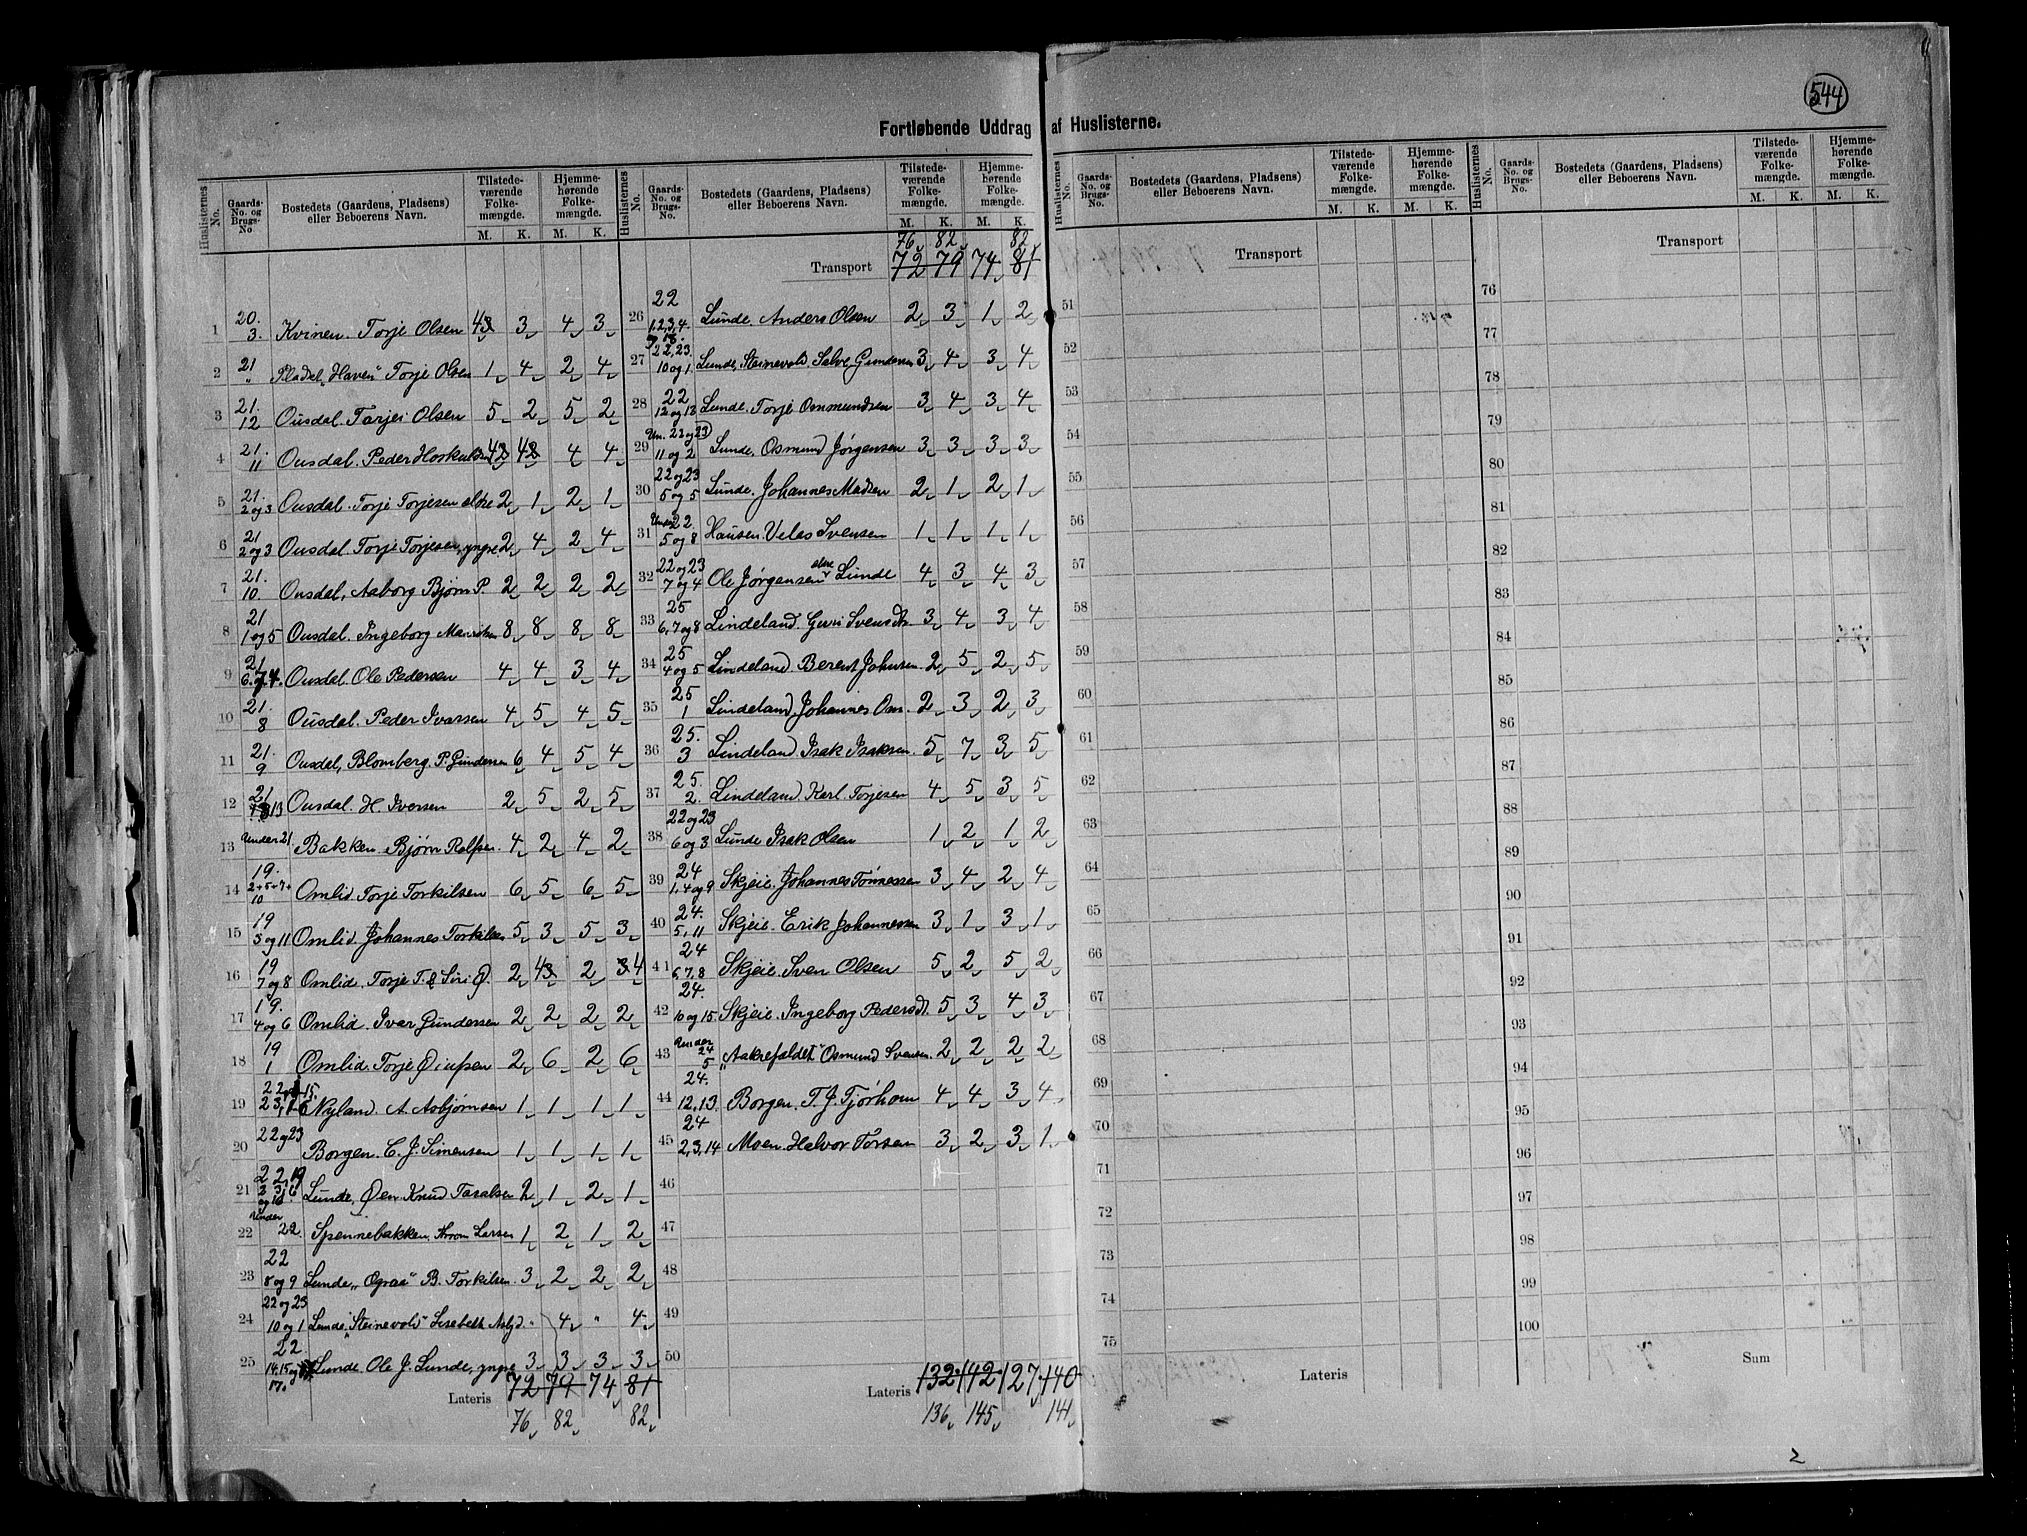 544
Fortløbende Uddrag af Huslisterne.
Huslisternes No. Gaards- No. og Brugs- No. Bostedets (Gaardens, Pladsens) eller Beboerens Navn. Tilstedeværende Folkemængde. Hjemmehørende Folkemængde.
M. K. M. K.
1 20. 3. Kvinen. Torje Olsen 4 3 4 3
2 21 " Pladsel "Haven" Torje Olsen 1 4 2 4
3 21. 12 Ousdal. Tarjei Olsen 5 2 5 2
4 21. 11 Ousdal. Peder Hoskulds 4 4 4 4
5 21. 2 og 3 Ousdal. Torje Torjesen eldre 2 1 2 1
6 21 2 og 3 Ousdal. Torje Torjesen, yngre 2 4 2 4
7 21. 10. Ousdal, Aaborg Bjørn P. 2 2 2 2
8 21 1 og 5 Ousdal. Ingeborg 8 8 8 8
9 21 6. 7. 4. Ousdal. Ole Pedersen 4 4 3 4
10 21. 8 Ousdal. Peder Ivarsen 4 5 4 5
11 21. 9 Ousdal, Blomberg. P. Gundersen 6 4 5 4
12 21 13 Ousdal. H. Iversen 2 5 2 5
13 Under 21. Bakken. Bjørn Rolfsen. 4 2 4 2
14 19. 2+5+7+ 10 Omlid. Torje Torkilsen 6 5 6 5
15 19 5 og 11 Omlid. Johannes Torkilsen 5 3 5 3
16 19 7 og 8 Omlid. Torje T. & Siri Ø. 2 4 2 4
17 19. 4 og 6 Omlid. Ivar Gundersen 2 2 2 2
18 19 1 Omlid. Torje 2 6 2 6
19 Nyland. A. Asbjørnsen 1 1 1 1
20 22 og 23 Borgen. C. J. Simensen 1 1 1 1
21 Lunde, Øen Knud Taralsen 2 1 2 1
22 Under 22. Spennebakken. Larsen 1 2 1 2
23 22 8 og 9 Lunde, "Ograa" B. Torkilsen. 3 2 2 2
24 22 og 23 10 og 1 Lunde. "Steinevold" Lisebeth " 4 " 4
25 22 14. 15 og 17. Lunde. Ole J. Lunde, yngre 3 3 3 3
Lateris 72 79 74 81
76 82 82
76 82 82
Transport 72 79 74 81
26 22 1,2,3,4. Lunde. Anders Olsen 2 3 1 2
27 22, 23. 10 og 1. Lunde, Steinevold. Salve Gundersen 3 4 3 4
28 22 12 og 13 Lunde. Torje Osmundsen 3 4 3 4
29 Un. 22 og 23 11 og 2 Lunde, Osmund Jørgensen 3 3 3 3
30 22 og 23 5 og 5 Lunde. Johannes Madsen 2 1 2 1
31 Under 22. 5 og 8 Hausen. Svensen 1 1 1 1
32 22 og 23 7 og 4 Ole Jørgensen eldre Lunde 4 3 4 3
33 25 6, 7 og 8 Lindeland. Svensdtr 3 4 3 4
34 25 4 og 5 Lindeland. Berent Johnsen 2 5 2 5
35 25 1 Lindeland, Johannes Osm. 2 3 2 3
36 25. 3 Lindeland. Isak Isaksen. 5 7 3 5
37 25. 2. Lindeland. Karl Torjesen 4 5 3 5
38 22 og 23 6 og 3 Lunde Isak Olsen 1 2 1 2
39 24 1, 4 og 9 Skjeie. Johannes Tønnessen 3 4 2 4
40 24. 5, 11 Skjeie. Erik Johannessen 3 1 3 1
41 24 6. 7. 8 Skjeie. Sven Olsen 5 2 5 2
42 24. 10 og 15. Skjeie. Ingeborg Pedersdt. 5 3 4 3
43 Under 24 5 "Aakrefaldet" Osmund Svensen. 2 2 2 2
44 24. 12, 13. Borgen. T. J. Tjørhom 4 4 3 4
45 24 2, 3, 14 Moen. Halvor Torsen 3 2 3 1
46
47
48
49
50
Lateris 132 142 127 140
136 145 141
Huslisternes No. Gaards- No. og Brugs- No. Bostedets (Gaardens, Pladsens) eller Beboerens Navn. Tilstedeværende Folkemængde. Hjemmehørende Folkemængde.
M. K. M. K.
Transport
51
52
53
54
55
56
57
58
59
60
61
62
63
64
65
66
67
68
69
70
71
72
73
74
75
Lateris
Transport
76
77
78
79
80
81
82
83
84
85
86
87
88
89
90
91
92
93
94
95
96
97
98
99
100
Sum
2